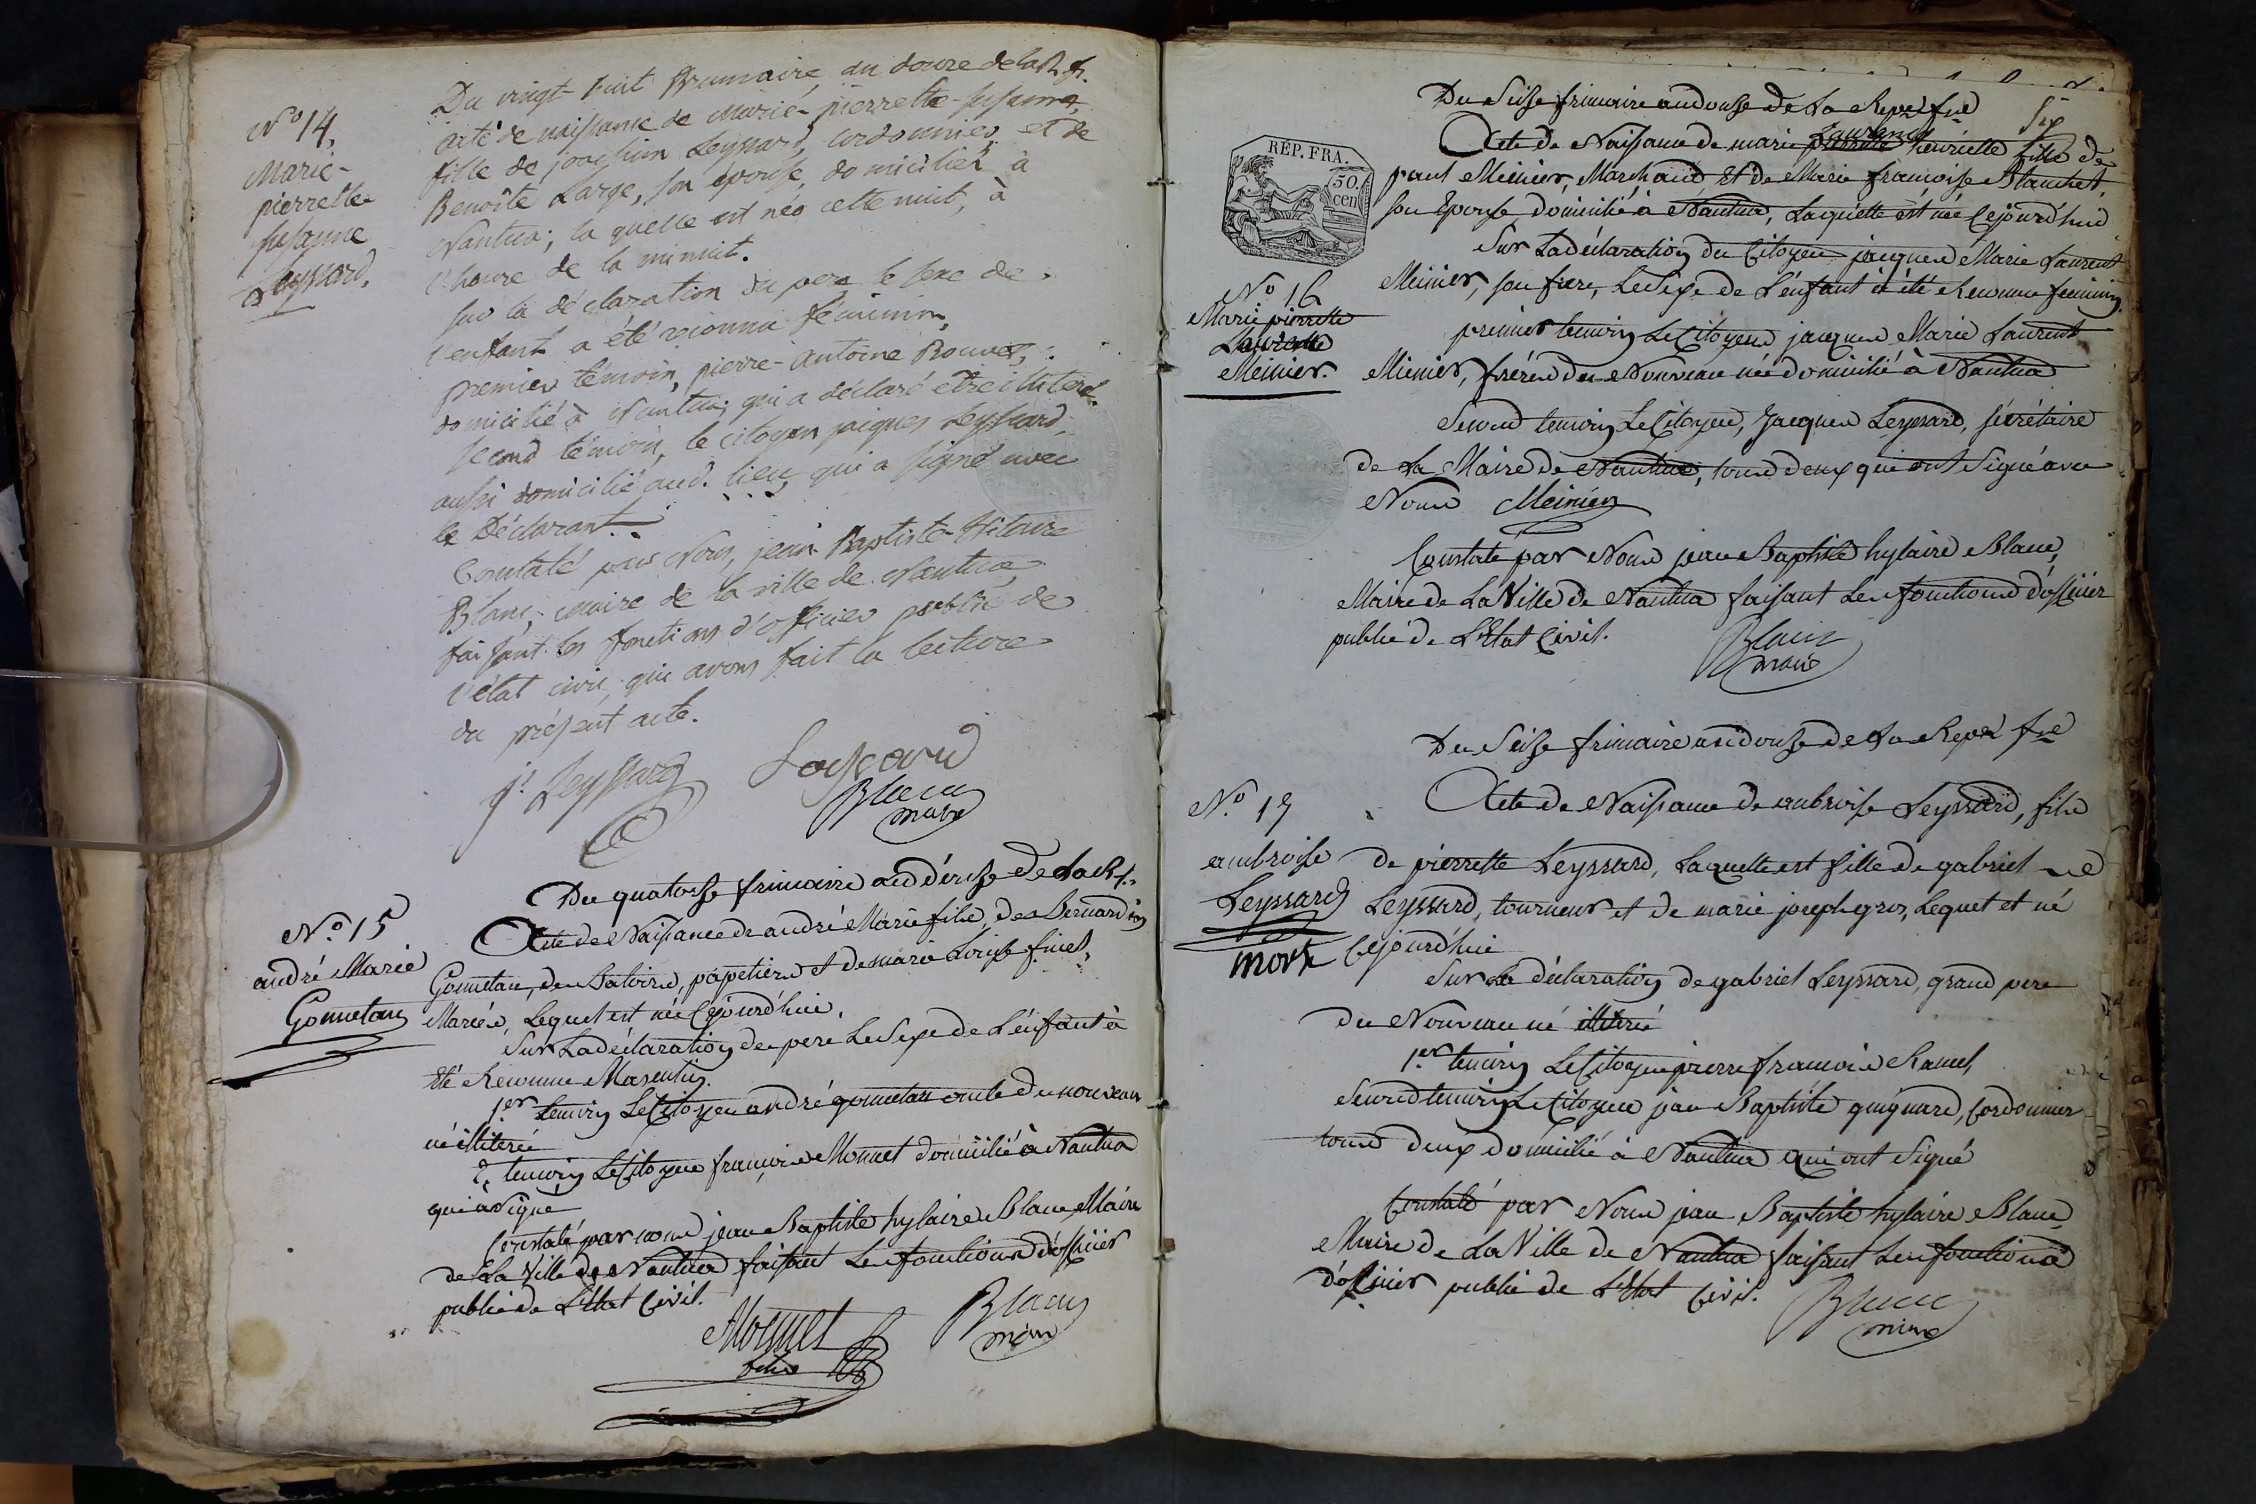 N° 14,
Marie-
pierrette
susanne
Leyssard,
Du vingt-huit Brumaire, an douze de la R. f.
acte de naissance de marie-pierrette-susanne,
fille de joachim Leyssard, cordonnier et de
Benoîte Large, son épouse, domiciliés à
Nantua; la quelle est née cette nuit, à
l'heure de la minuit.
sur la déclaration du pere le sexe de
l'enfant a été reconnu féminin,
premier témoin, pierre-antoine Bouvet,
domicilié à Nantua, qui a déclaré être illiteré.
second témoin, le citoyen jaiques Leyssard,
aussi domicilié aud. lieu, qui a signé avec
le Déclarant.
Constaté par Nous, jean-Baptiste-Hilaire
Blanc, maire de la ville de Nantua,
faisant les fonctions d'officier public de
l'état civil, qui avons fait la lecture
du présent acte.
j. Leyssard Leyssard
Blanc
maire
N.° 15
andré Marie
Gonnetan
Du quatorse frimaire an dousse de la R f.
Acte de Naissance de andré Marie fils, des Bernardin
Gonnetan, des Batoirs, papetiers et de marie Louise
Mariés, Lequel est née Cejourd'hui.
Sur La déclaration du pere Le Sexe de L'énfant à
Eté Reconnu Masculin.
1.er temoin Le Citoyen andré gonnetan oncle du nouveau
né illiteré
2.e temoin Le Citoyen françois Monnet domicilié à Nantua
qui à Signé
Constaté par nous jean Baptiste hylaire Blanc Maire
de La Ville de Nantua faisant Les fonctions d'officier
public de L'Etat Civil.
Monnet
fils
Blanc
maire
Six
Du Seise frimaire an dousse de La Repu fse
RÉP. FRA.
50.
cen
Acte de Naissance de marie pierrette Laurence henriette fille de
paul Meinier, Marchand Et de Marie françoise Blanchet,
son Epouse domicilié à Nantua, Laquelle est née Cejourd'huis
Sur La déclaration du Citoyen jacques Marie Laurent
Meinier, son frere, Le Sexe de L'énfant à été Reconnu feminin,
N° 16
Marie pierrette
Laurette
Meinier.
premier temoin Le Citoyens jacques Marie Laurent
Meinier, fréres du Nouveau né domicilié à Nantua
Second temoin Le Citoyen, Jacques Leyssard, sécrétaire
de La Maire de Nantua, tous deux qui ont Signé avec
Nous Meinier
Constate par Nous jean Baptiste hylaire Blanc,
Maire de La Ville de Nantua faisant Les fonctions d'officier
public de L'Etat Civil.
Blanc
maire
Du Seise frimaire an douse de La Repu fse
N.° 17
ambroise
Leyssard
mort
Acte de Naissance de ambroise Leyssard, fils
de pierrette Leyssard, Laquelle est fille de gabriel
Leyssard, tourneur et de marie joseph gros, Lequel et né
Cejourd'hui
Sur La déclaration de gabriel Leyssard, grand pere
du Nouveau né illiteré
1.er temoin Le Citoyen pierre françois Ramel,
Second temoin Le Citoyen jean Baptiste guignard, Cordonnier
tous deux domicilié à Nantua qui ont Signé
Constaté par Nous jean Baptiste hylaire Blanc
Maire de La Ville de Nantua faisant Les fonctions
d'officier public de L'Etat Civil.
Blanc
maire